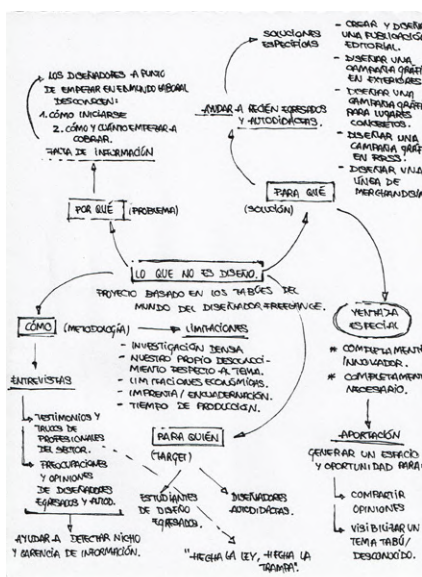 LOS DISEÑADORES A PUNTO
DE EMPEZAR EN EL MUNDO LABORAL
DESCONOCEN:
1. CÓMO INICIARSE
2. CÓMO Y CUÁNTO EMPEZAR A
COBRAR.
FALTA DE INFORMACIÓN
POR QUÉ (PROBLEMA)
SOLUCIONES
ESPECÍFICAS
- CREAR Y DISEÑAR
UNA PUBLICACIÓN
EDITORIAL.
- DISEÑAR UNA
CAMPAÑA GRÁFI
EN EXTERIORES
- DISEÑAR UNA
CAMPAÑA GRÁFI
PARA LUGARES
CONCRETOS.
- DISEÑAR UNA
CAMPAÑA GRÁF
EN RRSS.
- DISEÑAR UNA
LÍNEA DE
MERCHANDISI
AYUDAR A RECIÉN EGRESADOS
Y AUTODIDACTAS.
PARA QUÉ
(SOLUCIÓN)
LO QUE NO ES DISEÑO.
PROYECTO BASADO EN LOS TABÚES DEL
MUNDO DEL DISEÑADOR FREELANCE.
CÓMO (METODOLOGÍA) LIMITACIONES
- INVESTIGACIÓN DENSA
- NUESTRO PROPIO DESCONOCI-
MIENTO RESPECTO AL TEMA.
- LIMITACIONES ECONÓMICAS.
- IMPRENTA/ENCUADERNACIÓN.
- TIEMPO DE PRODUCCIÓN.
ENTREVISTAS
TESTIMONIOS Y
TRUCOS DE
PROFESIONALES
DEL SECTOR.
PREOCUPACIONES
Y OPINIONES
DE DISEÑADORES
EGRESADOS Y AUTOD.
AYUDAR A DETECTAR NICHO
Y CARENCIA DE INFORMACIÓN.
PARA QUIÉN
(TARGET)
ESTUDIANTES
DE DISEÑO
EGRESADOS.
DISEÑADORES
AUTODIDACTAS.
"HECHA LA LEY, HECHA LA
TRAMPA".
VENTAJA
ESPECIAL
* COMPLETAMENTE
INNOVADOR.
* COMPLETAMENTE
NECESARIO.
APORTACIÓN
GENERAR UN ESPACIO
Y OPORTUNIDAD PARA:
COMPARTIR
OPINIONES
VISIBILIZAR UN
TEMA TABÚ/
DESCONOCIDO.